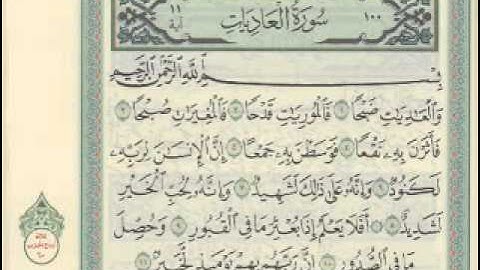 ١٠٠ سُورَةُ الْعَادِيَاتِ ١١ آية
بِسْمِ اللَّهِ الرَّحْمَٰنِ الرَّحِيمِ
وَالْعَادِيَاتِ ضَبْحًا ١ فَالْمُورِيَاتِ قَدْحًا ٢ فَالْمُغِيرَاتِ صُبْحًا ٣
فَأَثَرْنَ بِهِ نَقْعًا ٤ فَوَسَطْنَ بِهِ جَمْعًا ٥ إِنَّ الْإِنسَانَ لِرَبِّهِ
لَكَنُودٌ ٦ وَإِنَّهُ عَلَىٰ ذَٰلِكَ لَشَهِيدٌ ٧ وَإِنَّهُ لِحُبِّ الْخَيْرِ
لَشَدِيدٌ ٨ أَفَلَا يَعْلَمُ إِذَا بُعْثِرَ مَا فِي الْقُبُورِ ٩ وَحُصِّلَ
مَا فِي الصُّدُورِ ١٠ إِنَّ رَبَّهُم بِهِمْ يَوْمَئِذٍ لَّخَبِيرٌ ١١